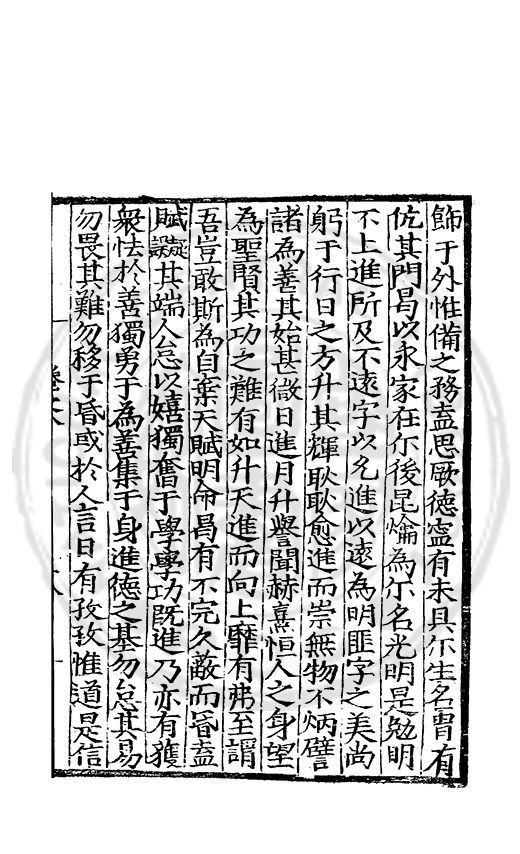 飾于外惟備之務盍思厥德寧有未具尒生名胄有
伉其門曷以永家在尒後昆爚為尒名光明是勉明
不上進所及不遠字以允進以遠為明匪字之美尚
躬于行日之方升其輝耿耿愈進而崇無物不炳譬
諸為善其始甚微日進月升譽聞赫熹恒人之身望
為聖賢其功之難有如升天進而向上靡有弗至謂
吾豈敢斯為自棄天賦明命曷有不完久蔽而昏盍
賦礙其端人怠以嬉獨奮于學學功既進乃亦有獲
衆怯於善獨勇于為善集于身進德之基勿怠其易
勿畏其難勿移于昏或於人言日有孜孜惟道是信